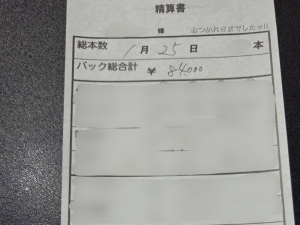 精算書
様 おつかれさまでしたッ!!
総本数 1月25日 本
バック総合計 ¥ 84,000